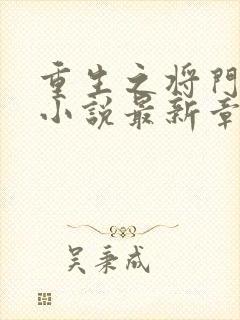 重生之将門
小説最新章
吴秉成